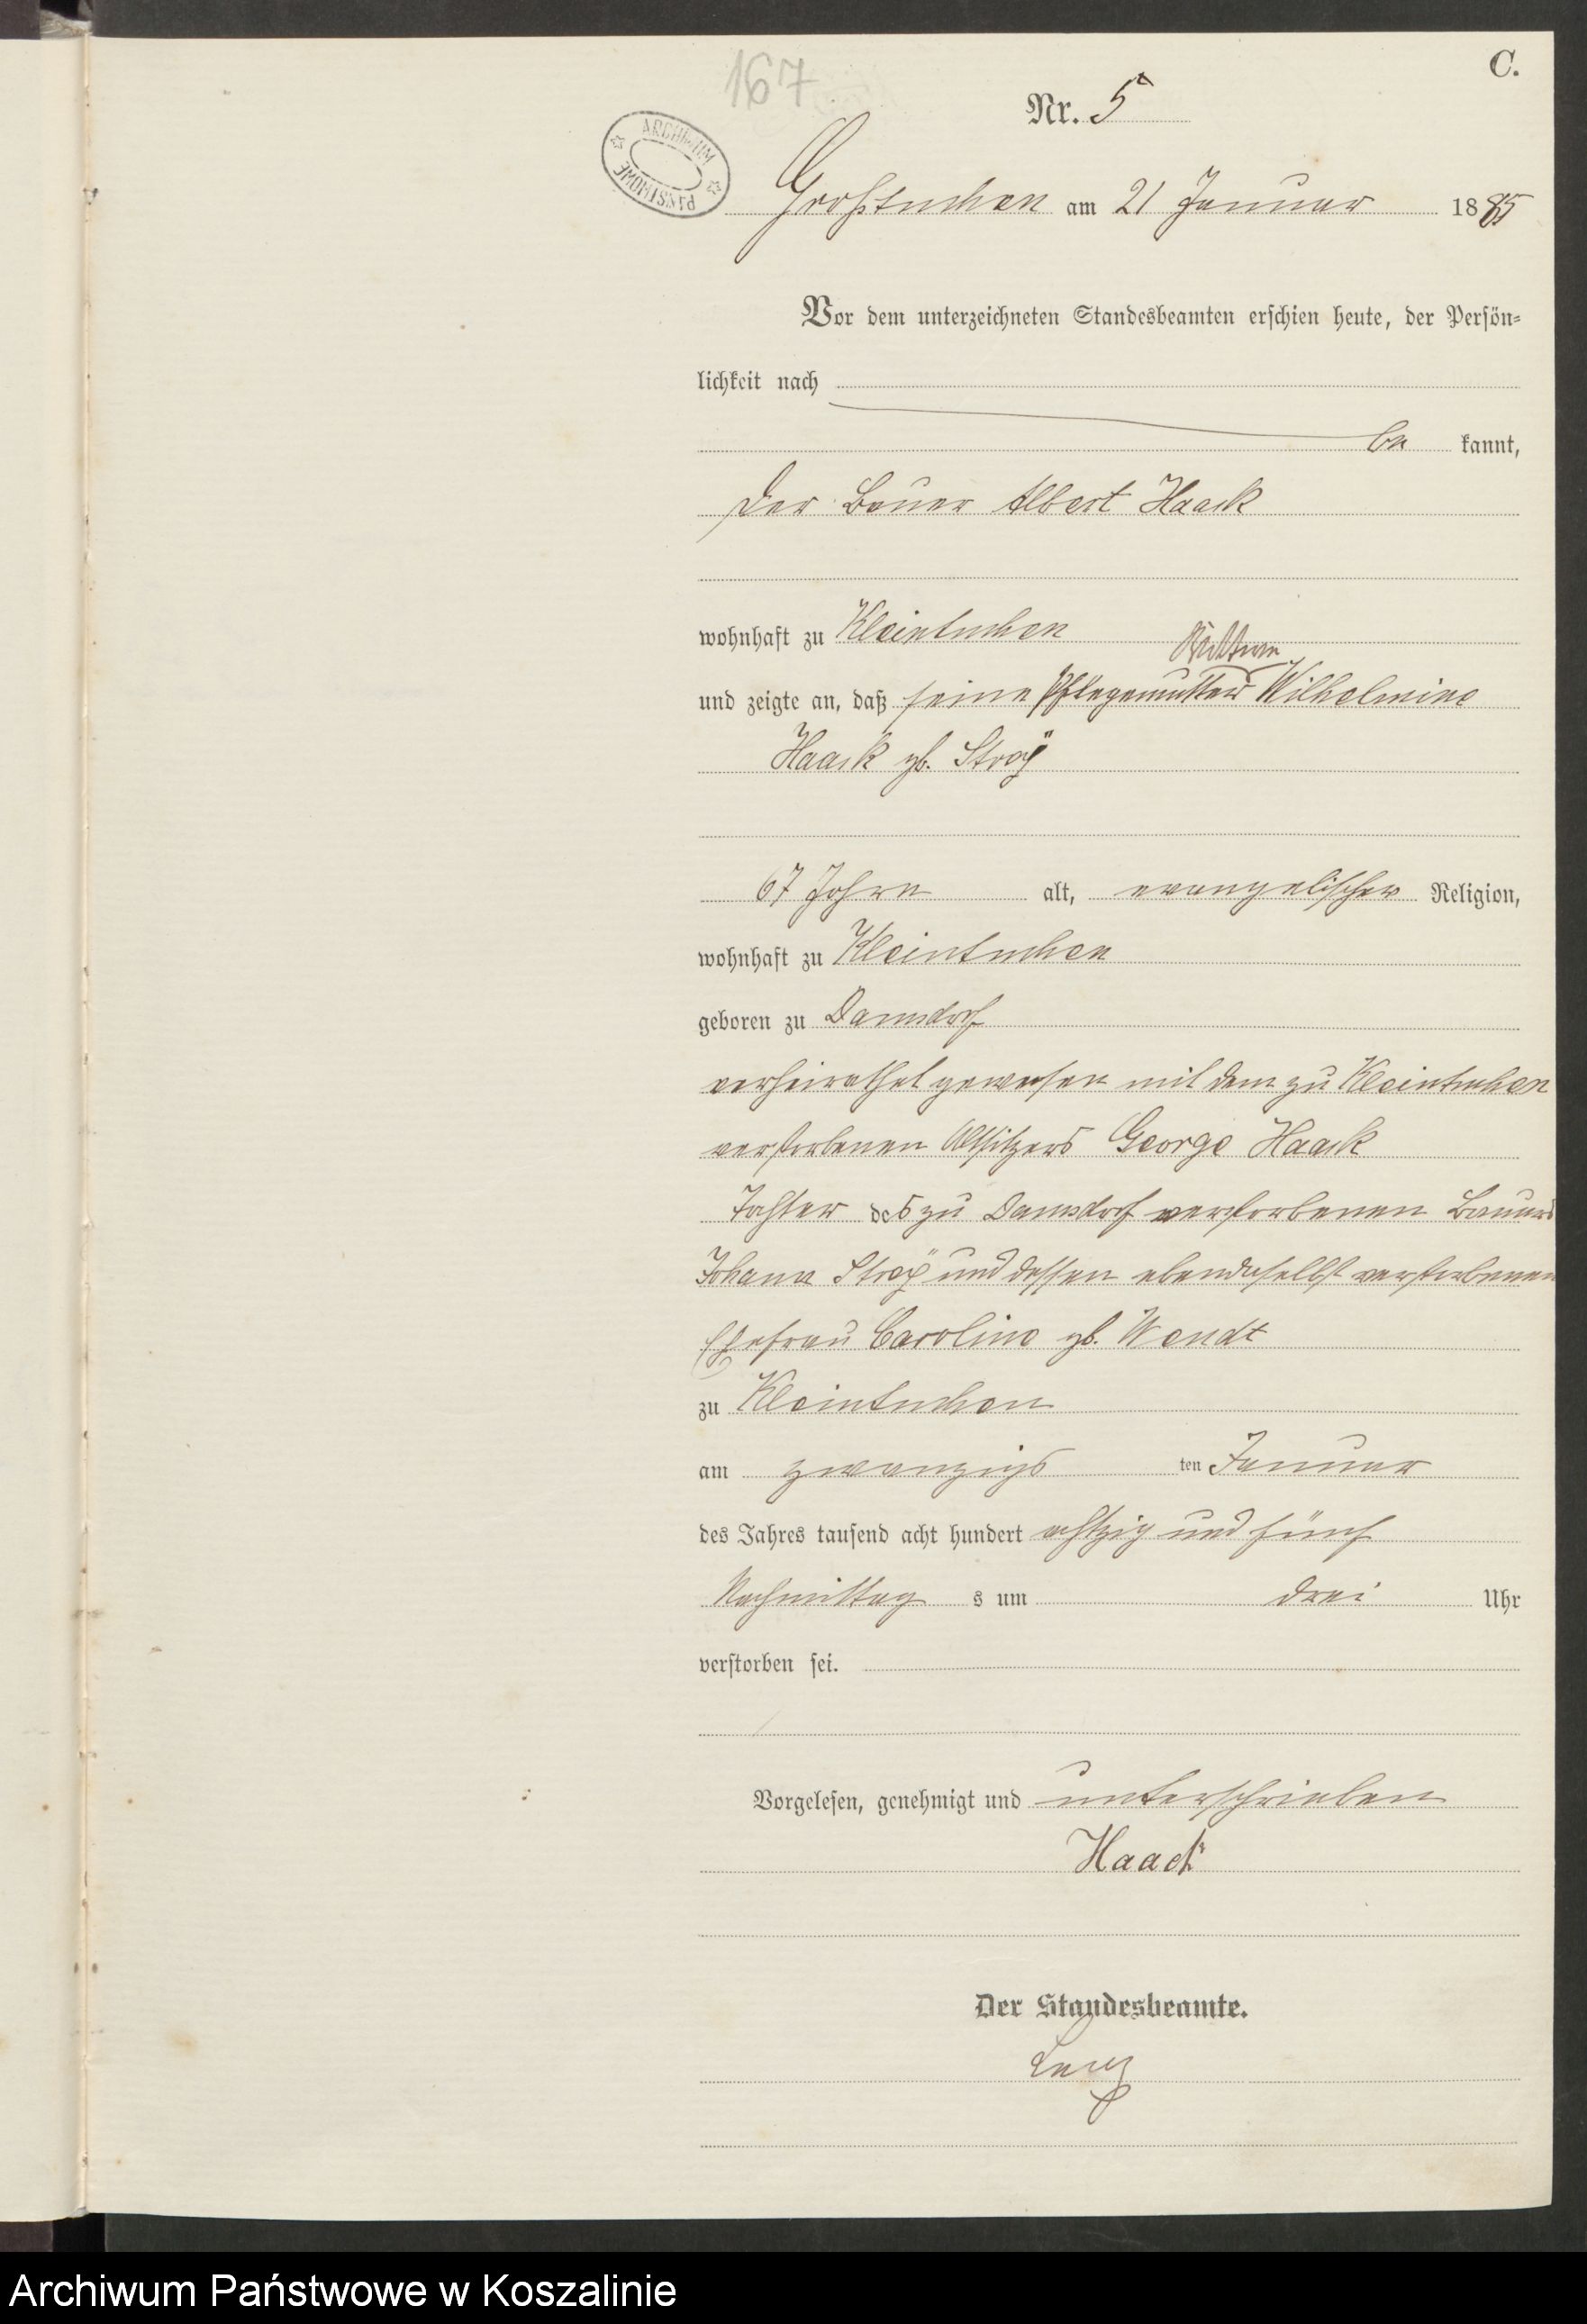 167
C.
Nr. 5
ARCHIWUM PAŃSTWOWE
Großtuchen am 21 Januar 1885
Vor dem unterzeichneten Standesbeamten erschien heute, der Persön-
lichkeit nach
be kannt,
der Bauer Albert Haack
wohnhaft zu Kleintuchen
Wittwe
und zeigte an, daß seine Pflegemutter Wilhelmine
Haack gb.
67 Jahre alt, evangelischer Religion,
wohnhaft zu Kleintuchen
geboren zu Damsdorf
verheirathet gewesen mit dem zu Kleintuchen
verstorbenen Altsitzers George Haack
Tochter des zu Damsdorf verstorbenen Bauers
Johann und dessen ebendaselbst verstorbenen
Ehefrau Caroline gb. Wendt
zu Kleintuchen
am zwanzigs ten Januar
des Jahres tausend acht hundert achtzig und fünf
Nachmittag s um drei Uhr
verstorben sei.
Vorgelesen, genehmigt und unterschrieben
Haack
Der Standesbeamte.
Archiwum Państwowe w Koszalinie